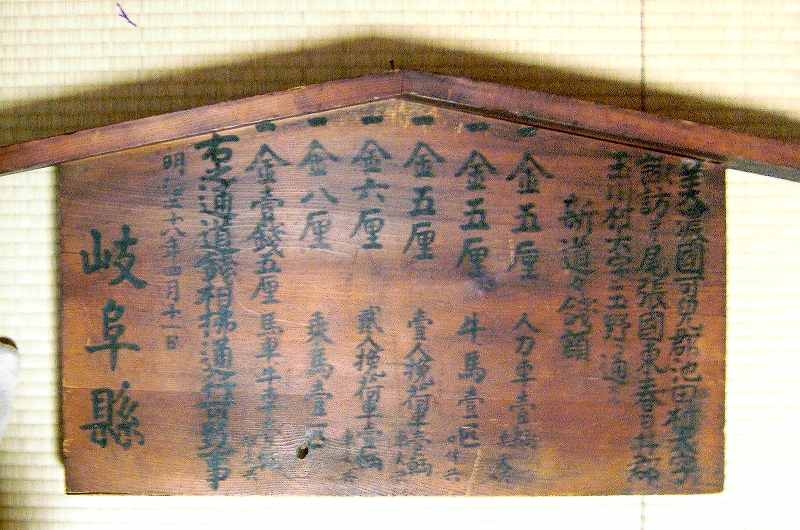 美濃國可児郡池田村大字
諏訪ヨリ尾張國東春日井郡
玉川村大字玉野ニ通スル
新道々錢額
一金五厘 人力車壹輌
一金五厘 牛馬壹匹
一金五厘 壹人挽荷車壹輌
一金六厘 貳人挽荷車壹輌
一金八厘 乗馬壹匹
一金壹錢五厘 馬車牛車壹輌
右之通道錢相拂通行可致事
明治二十八年四月十一日
岐阜縣